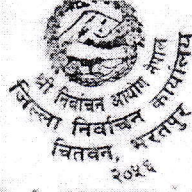 श्री निर्वाचन आयोग नेपाल
जिल्ला निर्वाचन कार्यालय
चितवन, भरतपुर
२०५६